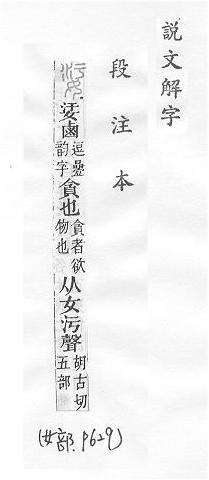 説文解字
段注本
鹵逗疊韵字貪也貪者欲物也从女污聲胡古切五部
(女部. P629)